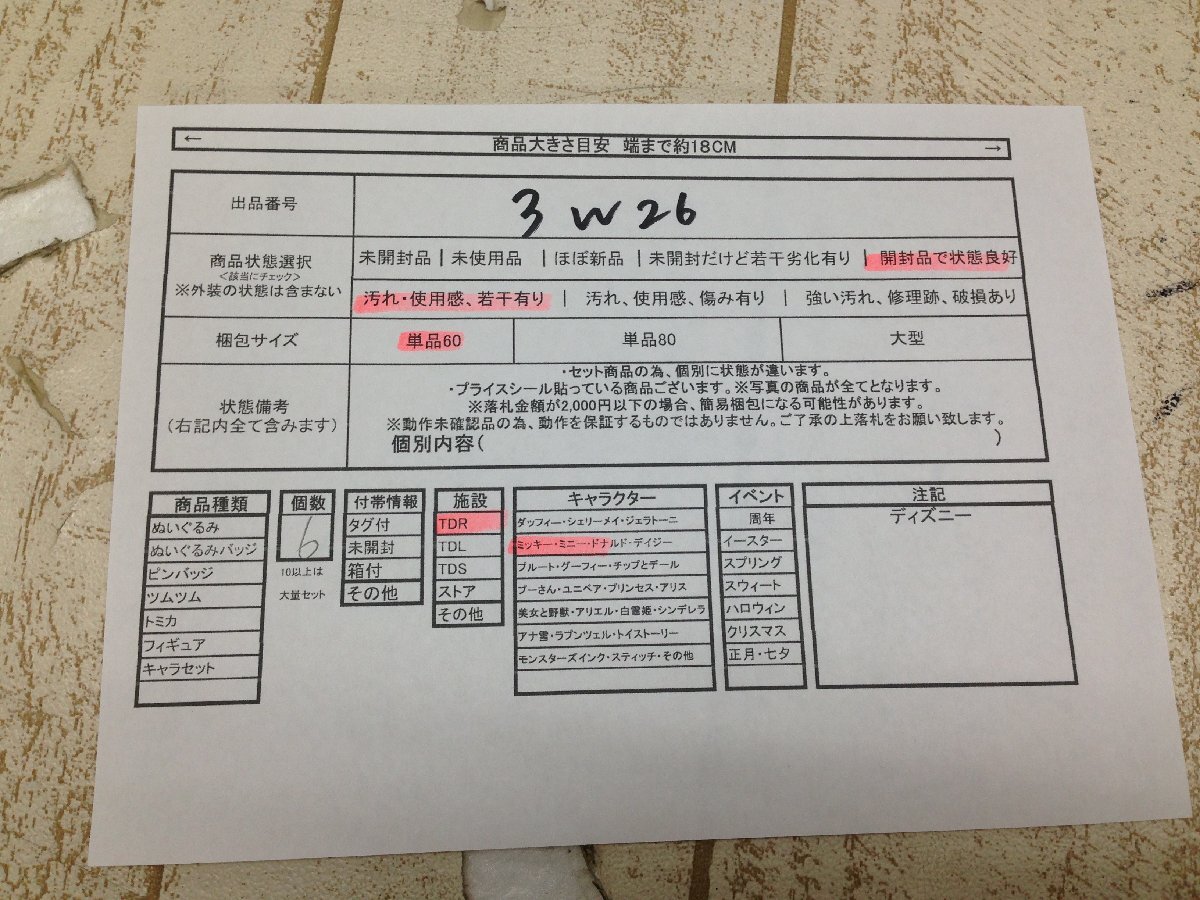 ← 商品大きさ目安 端まで約18CM →
出品番号 3 W 26
商品状態選択
<該当にチェック>
※外装の状態は含まない
未開封品 | 未使用品 | ほぼ新品 | 未開封だけど若干劣化有り | 開封品で状態良好
汚れ・使用感、若干有り | 汚れ、使用感、傷み有り | 強い汚れ、修理跡、破損あり
梱包サイズ 単品60 単品80 大型
状態備考
(右記内全て含みます)
・セット商品の為、個別に状態が違います。
・プライスシール貼っている商品ございます。※写真の商品が全てとなります。
※落札金額が2,000円以下の場合、簡易梱包になる可能性があります。
※動作未確認品の為、動作を保証するものではありません。ご了承の上落札をお願い致します。
個別内容( )
商品種類
ぬいぐるみ
ぬいぐるみバッジ
ピンバッジ
ツムツム
トミカ
フィギュア
キャラセット
個数
6
10以上は
大量セット
付帯情報
タグ付
未開封
箱付
その他
施設
TDR
TDL
TDS
ストア
その他
キャラクター
ダッフィー・シェリーメイ・ジェラトーニ
ミッキー・ミニー・ドナルド・デイジー
プルート・グーフィー・チップとデール
プーさん・ユニベア・プリンセス・アリス
美女と野獣・アリエル・白雪姫・シンデレラ
アナ雪・ラプンツェル・トイストーリー
モンスターズインク・スティッチ・その他
イベント
周年
イースター
スプリング
スウィート
ハロウィン
クリスマス
正月・七夕
注記
ディズニー